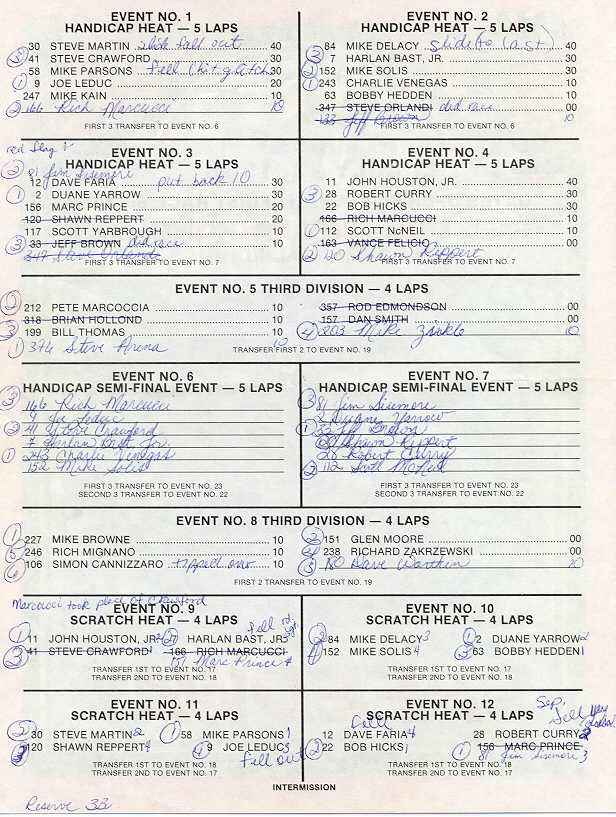 EVENT NO. 1
HANDICAP HEAT — 5 LAPS
30 STEVE MARTIN slide fall out 40
3 41 STEVE CRAWFORD 30
58 MIKE PARSONS Fell 30
1 9 JOE LEDUC 20
247 MIKE KAIN 10
2 166 Rich Marcucci 10
FIRST 3 TRANSFER TO EVENT NO. 6
EVENT NO. 2
HANDICAP HEAT — 5 LAPS
84 MIKE DELACY 40
3 7 HARLAN BAST, JR. 30
2 152 MIKE SOLIS 30
1 243 CHARLIE VENEGAS 10
63 BOBBY HEDDEN 10
347 STEVE ORLANDI did race 10
133 Jeff 10
FIRST 3 TRANSFER TO EVENT NO. 6
EVENT NO. 3
HANDICAP HEAT — 5 LAPS
2 81 Jim Sisemore
12 DAVE FARIA put back 10 30
1 2 DUANE YARROW 30
156 MARC PRINCE 20
120 SHAWN REPPERT 20
117 SCOTT YARBROUGH 10
3 33 JEFF BROWN did race 10
347 Steve Orlandi
FIRST 3 TRANSFER TO EVENT NO. 7
EVENT NO. 4
HANDICAP HEAT — 5 LAPS
11 JOHN HOUSTON, JR. 40
3 28 ROBERT CURRY 30
22 BOB HICKS 30
166 RICH MARCUCCI 10
1 112 SCOTT McNEIL 10
163 VANCE FELICIO 00
2 120 Shawn Reppert
FIRST 3 TRANSFER TO EVENT NO. 7
EVENT NO. 5 THIRD DIVISION — 4 LAPS
212 PETE MARCOCCIA 10
318 BRIAN HOLLOND 10
3 199 BILL THOMAS 10
1 376 Steve Arena 10
357 ROD EDMONDSON 00
157 DAN SMITH 00
203 Mike 10
TRANSFER FIRST 2 TO EVENT NO. 19
EVENT NO. 6
HANDICAP SEMI-FINAL EVENT — 5 LAPS
3 166 Rich Marcucci
9 Joe Leduc
2 41 Steve Crawford
7 Harlan Bast Jr.
1 243 Charlie Venegas
152 Mike Solis
FIRST 3 TRANSFER TO EVENT NO. 23
SECOND 3 TRANSFER TO EVENT NO. 22
EVENT NO. 7
HANDICAP SEMI-FINAL EVENT — 5 LAPS
3 81 Jim Sisemore
2 Duane Yarrow
1 33 Jeff Brown
120 Shawn Reppert
28 Robert Curry
2 112 Scott McNeil
FIRST 3 TRANSFER TO EVENT NO. 23
SECOND 3 TRANSFER TO EVENT NO. 22
EVENT NO. 8 THIRD DIVISION — 4 LAPS
1 227 MIKE BROWNE 10
5 246 RICH MIGNANO 10
6 106 SIMON CANNIZZARO tipped over 10
2 151 GLEN MOORE 00
4 238 RICHARD ZAKRZEWSKI 00
3 180 Dave 10
FIRST 2 TRANSFER TO EVENT NO. 19
Marcucci took place of Crawford
EVENT NO. 9
SCRATCH HEAT — 4 LAPS
1 11 JOHN HOUSTON, JR. 2 7 HARLAN BAST, JR. 3
3 41 STEVE CRAWFORD 1 166 RICH MARCUCCI
Marc Prince 4
TRANSFER 1ST TO EVENT NO. 17
TRANSFER 2ND TO EVENT NO. 18
EVENT NO. 10
SCRATCH HEAT — 4 LAPS
2 84 MIKE DELACY 3 1 2 DUANE YARROW 2
4 152 MIKE SOLIS 4 3 63 BOBBY HEDDEN 1
TRANSFER 1ST TO EVENT NO. 17
TRANSFER 2ND TO EVENT NO. 18
EVENT NO. 11
SCRATCH HEAT — 4 LAPS
2 30 STEVE MARTIN 2 1 58 MIKE PARSONS 1
3 120 SHAWN REPPERT 4 4 9 JOE LEDUC 3
Fell out
TRANSFER 1ST TO EVENT NO. 18
TRANSFER 2ND TO EVENT NO. 17
EVENT NO. 12
SCRATCH HEAT — 4 LAPS
12 DAVE FARIA 4 28 ROBERT CURRY 2
2 22 BOB HICKS 1 1 156 MARC PRINCE
81 Jim Sisemore 3
TRANSFER 1ST TO EVENT NO. 18
TRANSFER 2ND TO EVENT NO. 17
INTERMISSION
Reserve 33